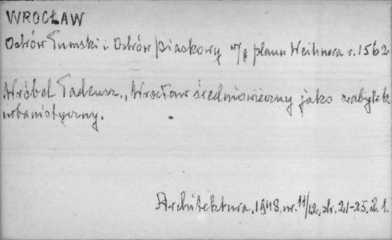 WROCŁAW
Ostrów Tumski i Ostrów Piaskowy w/g planu Weihnera r. 1562
Wróbel Tadeusz., Wrocław średniowieczny jako zabytek
urbanistyczny.
Architektura, 1948. nr. 11/12, str. 21-25, il. 1.